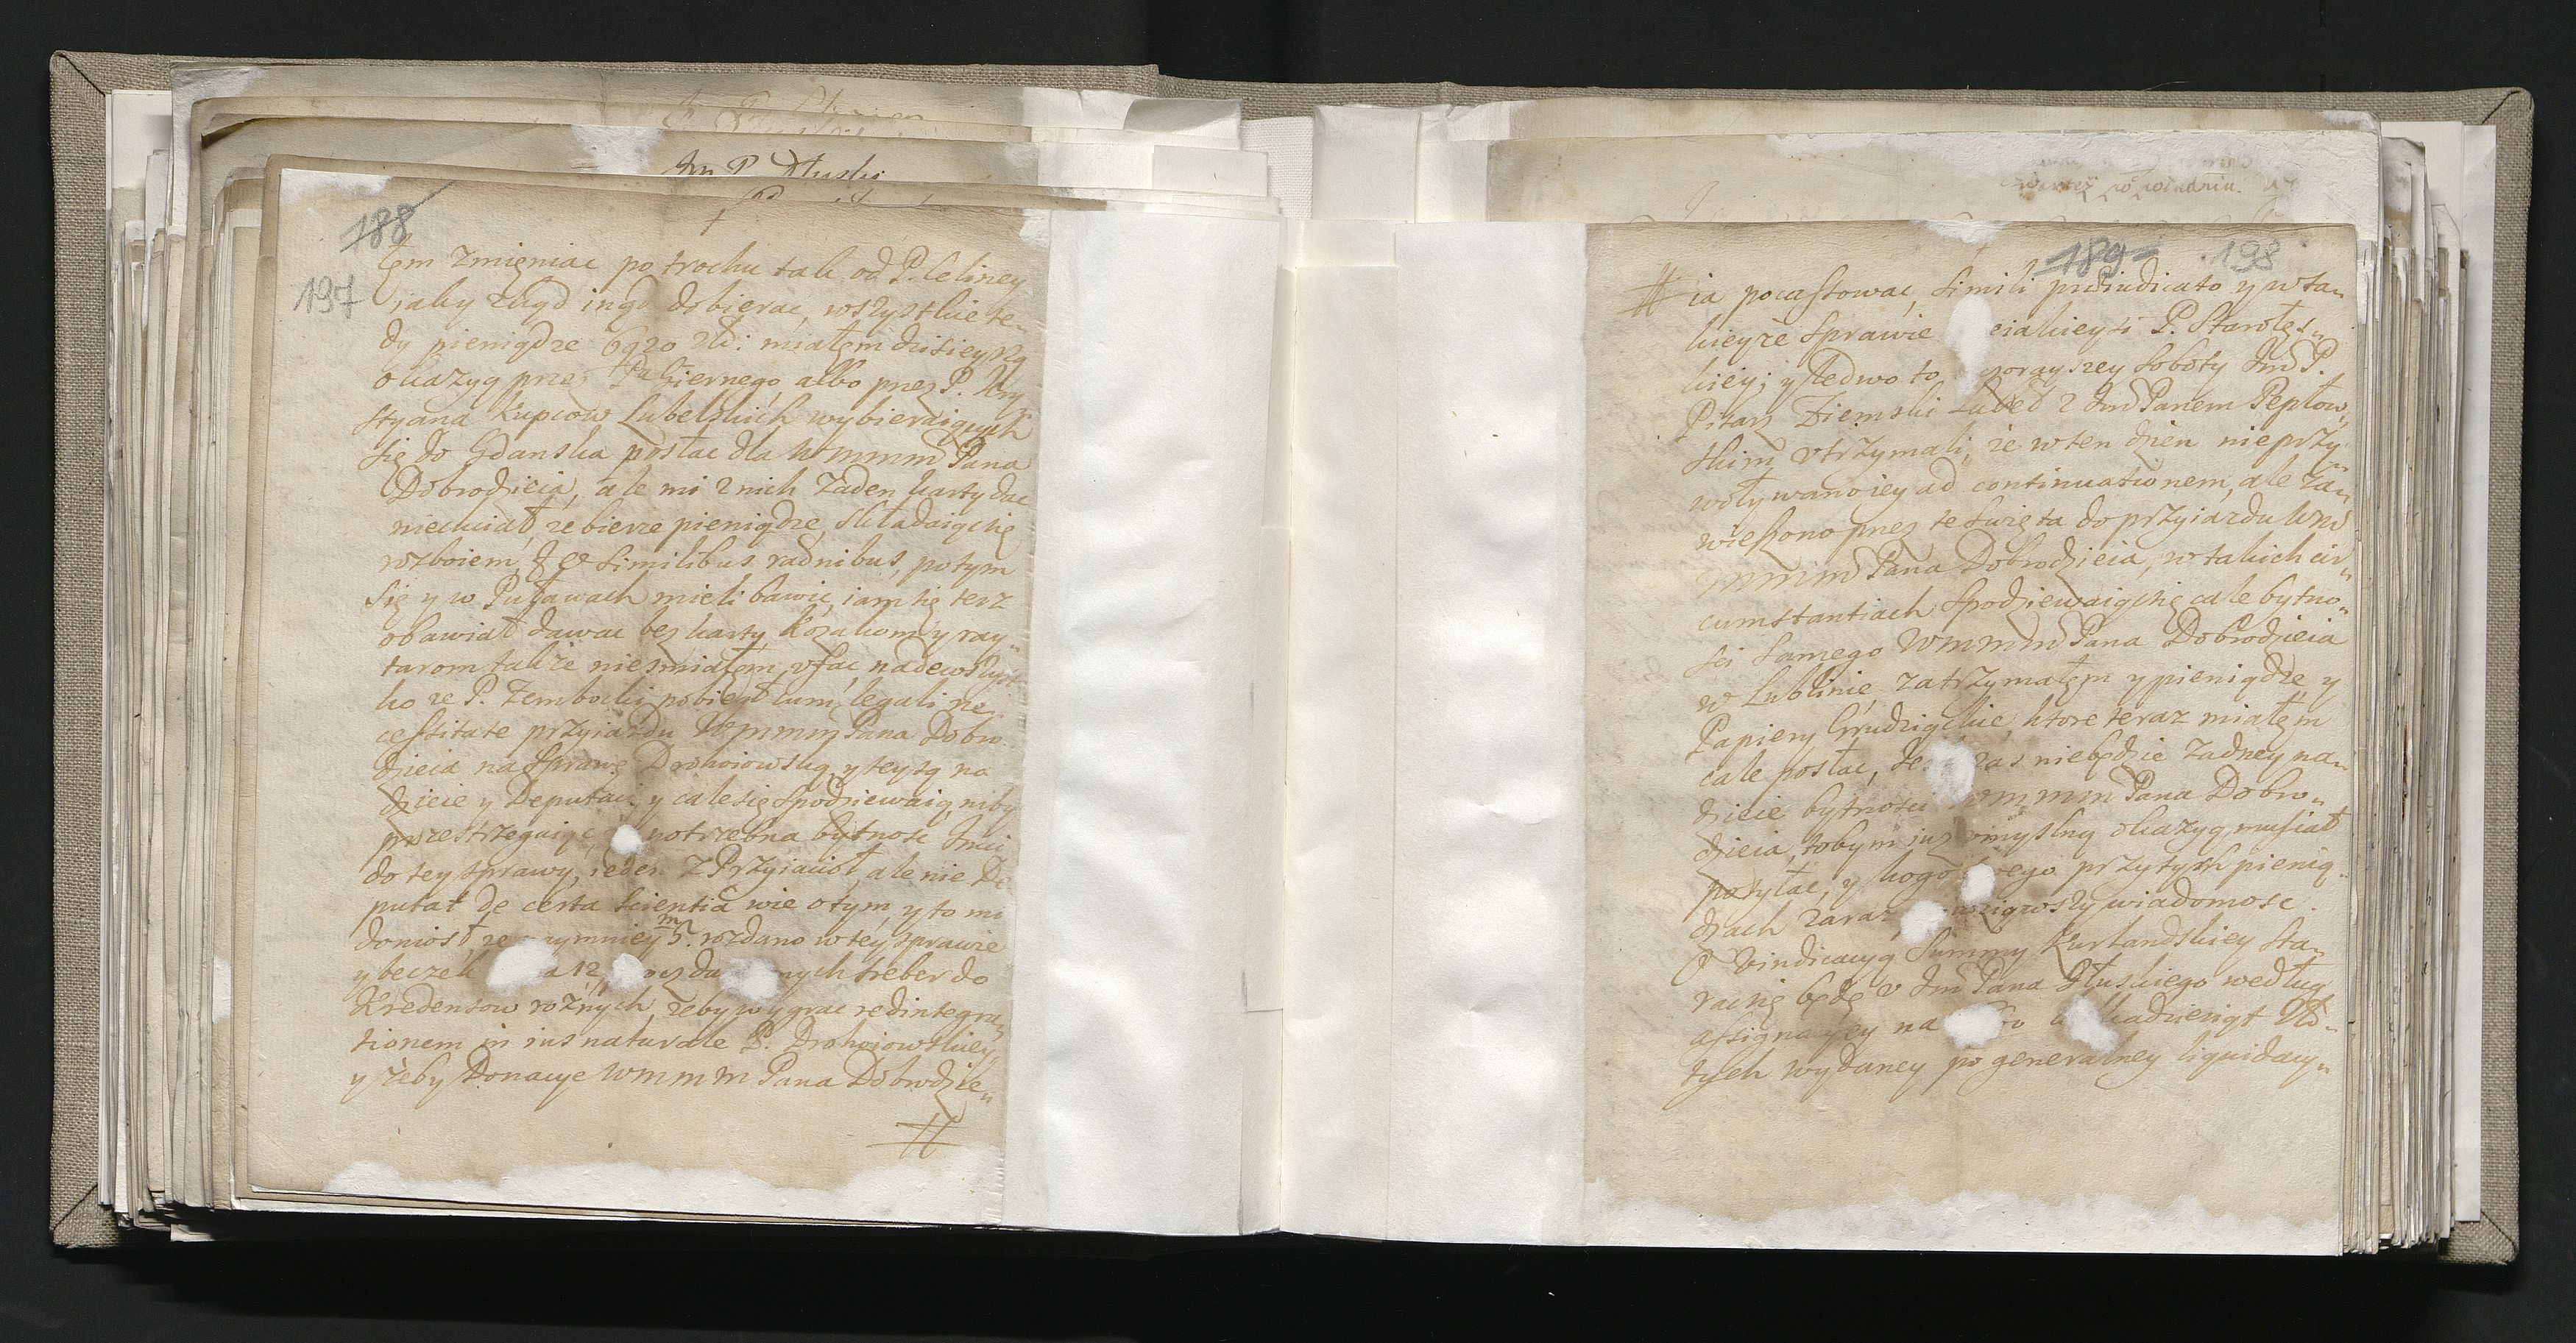 Im P. Dłuski
188
197
łęm zmięniac po trochu tak od P. Celiney
iak y zkąd ingd dobierac, wszystkie te„
dy pieniądze 6920 zł: miałęm dzisieyszą
okazyą przez albo przez P. Kry
styana kupcow Lubelskich wybieraiących
się do Gdanska posłac dla Wmmm Pana
Dobrodzieia, ale mi z nich żaden karty dac
niechciał, że bierze pieniądze, składaiąc się
rozboiem, & similibus potym
się y w Puławach mieli bawic, iam się tesz
obawiał dawac bez karty Kozakom y ray„
tarom także niesmiałęm ufac, nadewszyst
ko ze P. Zembocki pobiegł cum legali ne
cessitate przyiazdu Wmmm Pana Dobro„
dzieia na Sprawę Drohoiowską, y tey są na
dzieie y Deputaci y cale się spodziewaią, niby
przestrzegaiąc, potrzebna bytnosc Imci
do tey sprawy, ieden z Przyiacioł, ale nie De
putat de certa scientia wie o tym, y to mi
doniosł ze naymniey 5. rozdano w tey sprawie
y beczek 12, sreber do
Kredensow rożnych, żeby wygrac redintegra„
tionem in ius naturale P. Drohoiowskiey,
y żeby Donacye Wmmm Pana Dobrodzie„
#
czwartey w wiadniu.
189 198
# ia pocastowac, simili preiudicato y w ta„
kieyże Sprawie P. Starołęs„
kiey; y ledwo to Soboty Im P.
Pisarz Ziemski z Im Panem Pepłow„
skim utrzymali, że w ten dzien nieprzy„
woływano iey ad continuationem, ale za„
wieszono przez te Swięta do przyiazdu Wm
mmm Pana Dobrodzieia, w takich cir„
cumstantiach Spodziewaiąc się cale bytno„
sci samego Wmmm Pana Dobrodzieia
w Lublinie zatrzymałęm y pieniądze, y
Papiery Grudziąckie, ktore teraz miałęm
cale posłac, niebędzie żadney na„
dzieie bytnosci Wmmm Pana Dobro„
dzieia, tobym iuz umyslną okazyą musiał
posyłac, y kogo przy tych pienią„
dzach zaraz wziąwszy wiadomosc.
O Vindicacyą Summy Kurlandskiey sta„
rac się będę u Im Pana Dłuskiego według
assignacyey na Zło„
tych wydaney po generalney liquidacy„